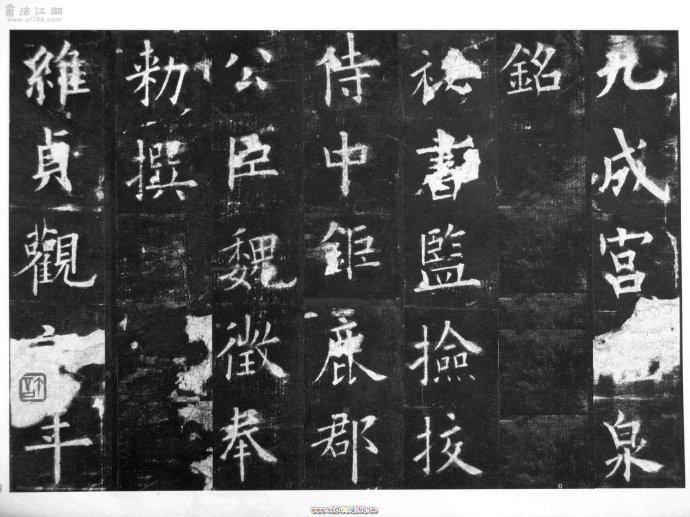 九成宮泉
銘
祕書監撿挍
侍中鉅鹿郡
公臣魏徵奉
勑撰
維貞觀年
書法江湖